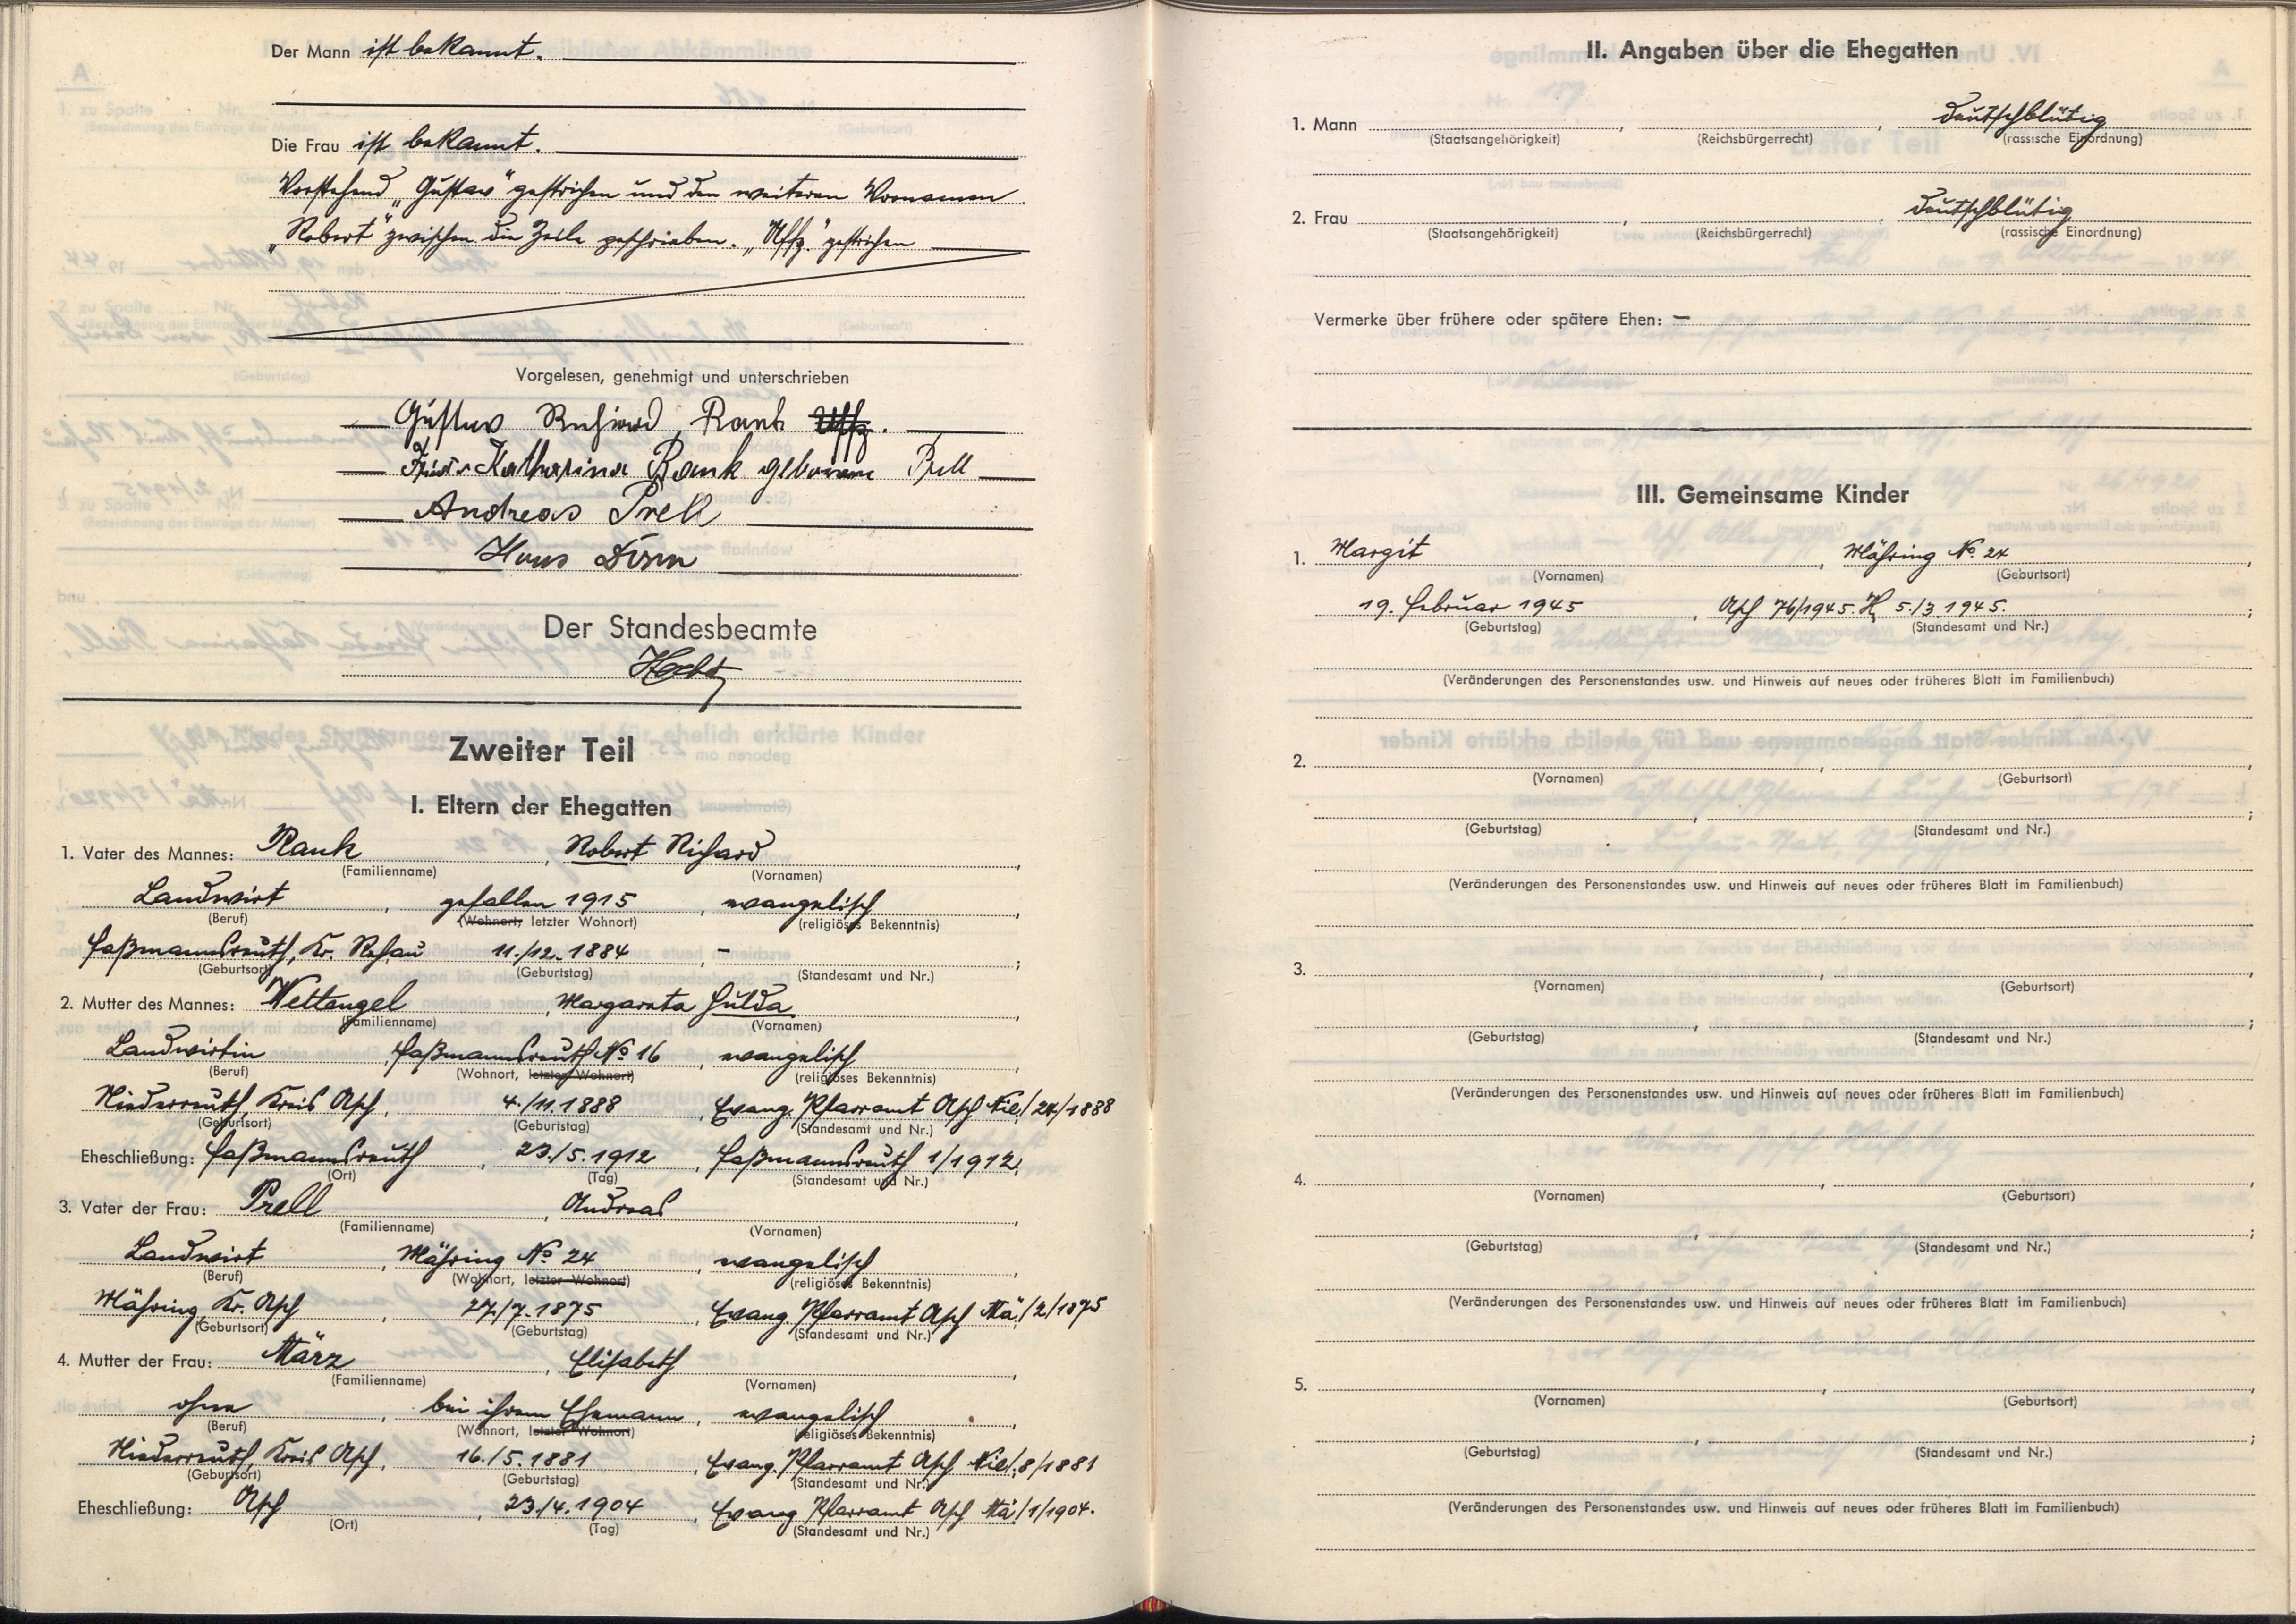 Der Mann ist bekannt.
Die Frau ist bekannt.
Vorstehend „Gustav" gestrichen und den weiteren Vornamen
„Robert" zwischen die Zeile geschrieben. „Uffz." gestrichen
Vorgelesen, genehmigt und unterschrieben
Gustav Richard Rank Uffz.
Katharina Rank geborene Prell
Andreas Prell
Hans
Der Standesbeamte
Zweiter Teil
I. Eltern der Ehegatten
1. Vater des Mannes: Rank, Robert Richard,
(Familienname) (Vornamen)
Landwirt, gefallen 1915, evangelisch,
(Beruf) (Wohnort, letzter Wohnort) (religiöses Bekenntnis)
Faßmannsreuth, Kr. Rehau 11./12. 1884, -;
(Geburtsort) (Geburtstag) (Standesamt und Nr.)
2. Mutter des Mannes: Wettengel, Margareta Hulda,
(Familienname) (Vornamen)
Landwirtin, Faßmannsreuth No 16, evangelisch,
(Beruf) (Wohnort, letzter Wohnort) (religiöses Bekenntnis)
Niederreuth, Kreis Asch, 4./11. 1888, Evang. Pfarramt Asch Nie./24/1888
(Geburtsort) (Geburtstag) (Standesamt und Nr.)
Eheschließung: Faßmannsreuth, 23./5. 1912, Faßmannsreuth 1/1912.
(Ort) (Tag) (Standesamt und Nr.)
3. Vater der Frau: Prell, Andreas,
(Familienname) (Vornamen)
Landwirt, Mähring No 24, evangelisch,
(Beruf) (Wohnort, letzter Wohnort) (religiöses Bekenntnis)
Mähring, Kr. Asch, 27./7. 1875, Evang. Pfarramt Asch Mä./2/1875
(Geburtsort) (Geburtstag) (Standesamt und Nr.)
4. Mutter der Frau: März, Elisabeth,
(Familienname) (Vornamen)
ohne, bei ihrem Ehemann, evangelisch,
(Beruf) (Wohnort, letzter Wohnort) (religiöses Bekenntnis)
Niederreuth, Kreis Asch, 16./5. 1881, Evang. Pfarramt Asch Nie./8/1881
(Geburtsort) (Geburtstag) (Standesamt und Nr.)
Eheschließung: Asch, 23./4. 1904, Evang Pfarramt Asch Mä./1/1904.
(Ort) (Tag) (Standesamt und Nr.)
II. Angaben über die Ehegatten
1. Mann , , deutschblütig
(Staatsangehörigkeit) (Reichsbürgerrecht) (rassische Einordnung)
2. Frau , , deutschblütig
(Staatsangehörigkeit) (Reichsbürgerrecht) (rassische Einordnung)
Vermerke über frühere oder spätere Ehen: —
III. Gemeinsame Kinder
1. Margit, Mähring No. 24,
(Vornamen) (Geburtsort)
19. Februar 1945, Asch 76/1945. 5./3. 1945.;
(Geburtstag) (Standesamt und Nr.)
(Veränderungen des Personenstandes usw. und Hinweis auf neues oder früheres Blatt im Familienbuch)
2. , ,
(Vornamen) (Geburtsort)
, ;
(Geburtstag) (Standesamt und Nr.)
(Veränderungen des Personenstandes usw. und Hinweis auf neues oder früheres Blatt im Familienbuch)
3. , ,
(Vornamen) (Geburtsort)
, ;
(Geburtstag) (Standesamt und Nr.)
(Veränderungen des Personenstandes usw. und Hinweis auf neues oder früheres Blatt im Familienbuch)
4. , ,
(Vornamen) (Geburtsort)
, ;
(Geburtstag) (Standesamt und Nr.)
(Veränderungen des Personenstandes usw. und Hinweis auf neues oder früheres Blatt im Familienbuch)
5. , ,
(Vornamen) (Geburtsort)
, ;
(Geburtstag) (Standesamt und Nr.)
(Veränderungen des Personenstandes usw. und Hinweis auf neues oder früheres Blatt im Familienbuch)